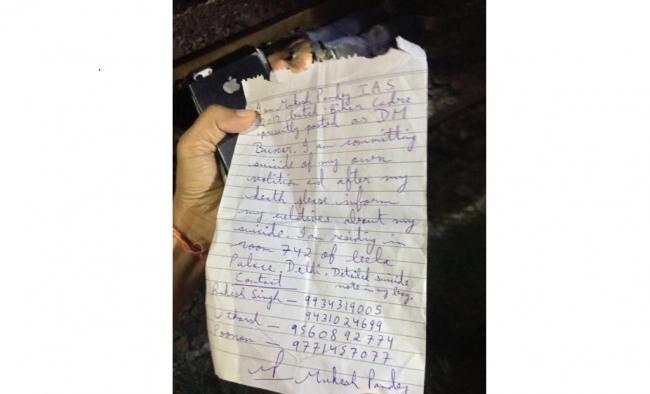 I am Mukesh Pandey IAS
2012 batch Bihar Cadre
presently posted as DM
Buxar. I am committing
suicide of my own
volition and after my
death please inform
my relatives about my
suicide. I am residing in
room 742 of Leela
Palace, Delhi. Detailed suicide
note in my bag.
Contact
Rakesh Singh — 9934319005
9431024699
— 9560892774
Poonam — 9771457077
MP Mukesh Pandey